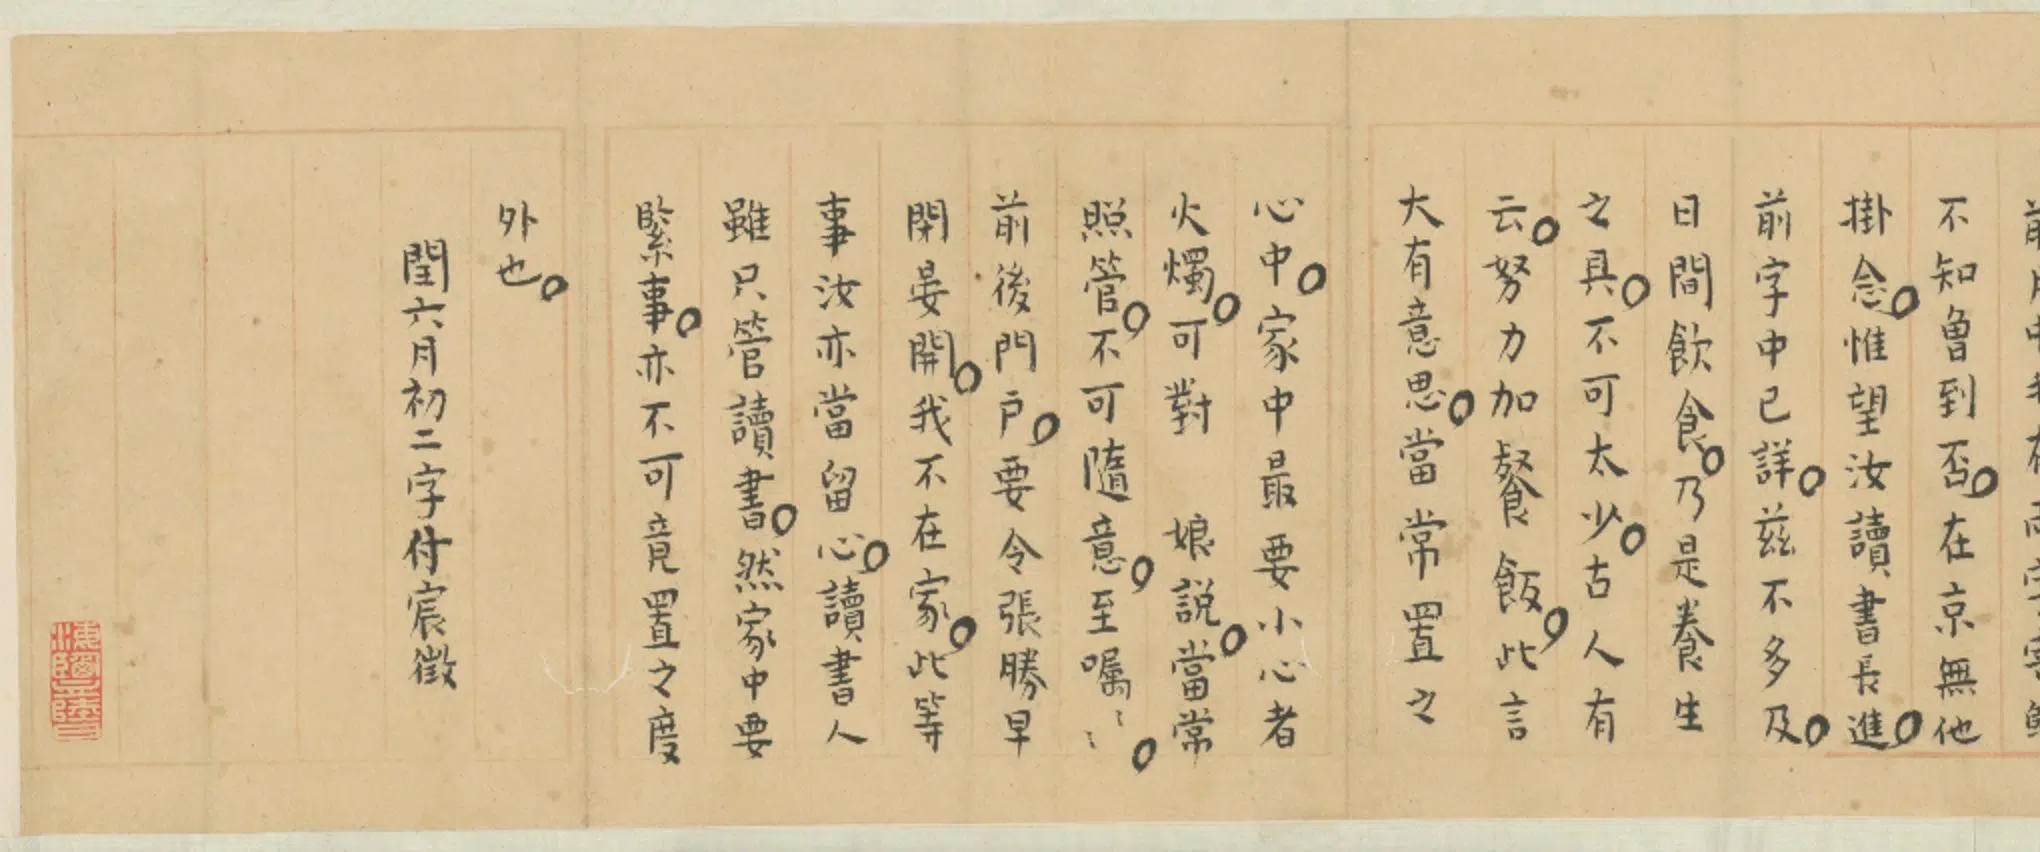 不知魯到否在京無他
掛念惟望汝讀書長進
前字中已詳茲不多及
日間飲食乃是養生
之具不可太少古人有
云努力加餐飯此言
大有意思當常置之
心中家中最要小心者
火燭可對 娘說當常
照管不可隨意至囑〻〻
前後門戶要令張勝早
閉晏開我不在家此等
事汝亦當留心讀書人
雖只管讀書然家中要
緊事亦不可竟置之度
外也
閏六月初二字付宸徵